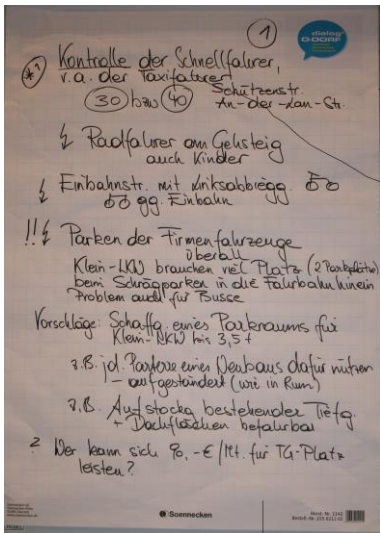 1
dialog
O-DORF
*1 Kontrolle der Schnellfahrer,
v.a. der Taxifahrer!
30 bzw 40 Schützenstr.
An-der-Lan-Str.
Radfahrer am Gehsteig
auch Kinder
Einbahnstr. mit Linksabbiegg.
gg. Einbahn
!! Parken der Firmenfahrzeuge
überall
Klein-LKW brauchen viel Platz (2 Parkplätze)
beim Schrägparken in die Fahrbahn hinein
Problem auch für Busse
Vorschläge: Schaffg. eines Parkraums für
Klein-LKW bis 3,5 t
z.B. jd. Parterre eines Neubaus dafür nützen
– aufgeständert (wie in Rum)
z.B. Aufstockg bestehender Tiefg.
+ Dachflächen befahrbar
? Wer kann sich 90,-€/Mt. für TG-Platz
leisten?
Soennecken